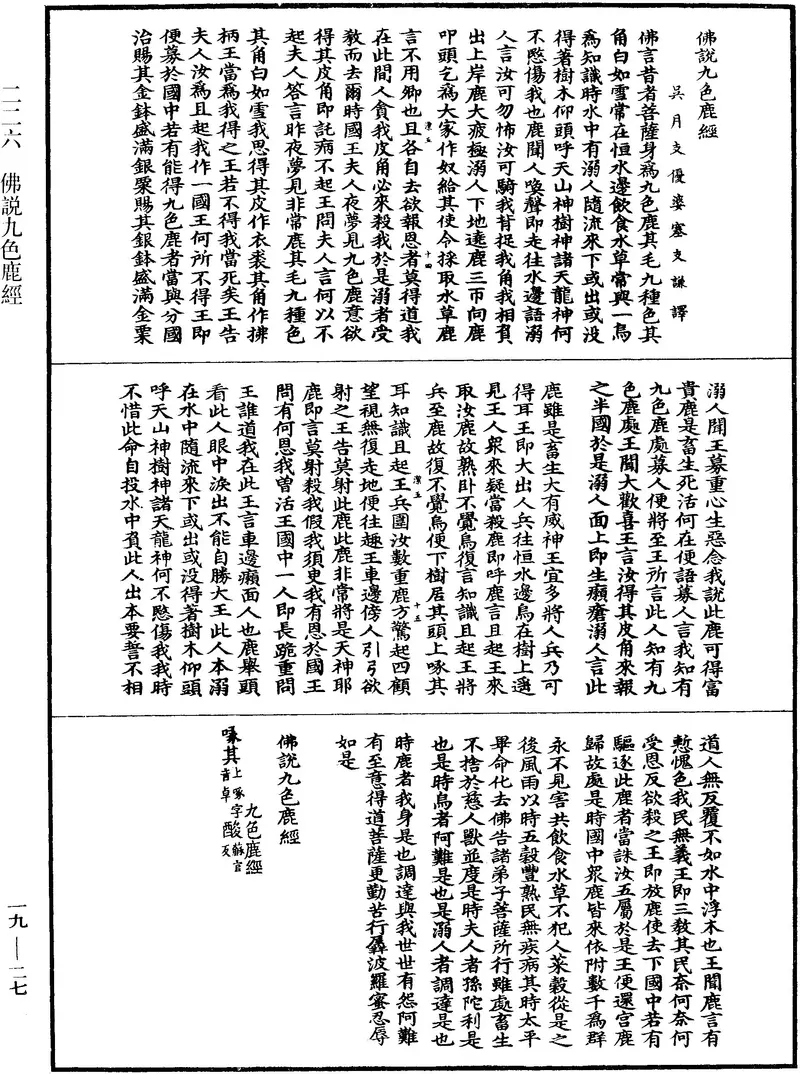 佛說九色鹿經
吳月支優婆塞支謙譯
佛言昔者菩薩身為九色鹿其毛九種色其
角白如雪常在恒水邊飲食水草常與一烏
為知識時水中有溺人隨流來下或出或沒
得著樹木仰頭呼天山神樹神諸天龍神何
不愍傷我也鹿聞人喚聲即走往水邊語溺
人言汝可勿怖汝可騎我背捉我角我相負
出上岸鹿大疲極溺人下地遶鹿三帀向鹿
叩頭乞為大家作奴給其使令採取水草鹿
言不用卿也且各自去欲報恩者莫得道我
在此間人貪我皮角必來殺我於是溺者受
教而去爾時國王夫人夜夢見九色鹿意欲
得其皮角即託病不起王問夫人言何以不
起夫人荅言昨夜夢見非常鹿其毛九種色
其角白如雪我思得其皮作衣裘其角作拂
柄王當為我得之王若不得我當死矣王告
夫人汝為且起我作一國王何所不得王即
便募於國中若有能得九色鹿者當與分國
治賜其金鉢盛滿銀粟賜其銀鉢盛滿金粟
溺人聞王募重心生惡念我說此鹿可得富
貴鹿是畜生死活何在便語募人言我知有
九色鹿處募人便將至王所言此人知有九
色鹿處王聞大歡喜王言汝得其皮角來報
之半國於是溺人面上即生癩瘡溺人言此
鹿雖是畜生大有威神王宜多將人兵乃可
得耳王即大出人兵往恒水邊烏在樹上遥
見王人眾來疑當殺鹿即呼鹿言且起王來
取汝鹿故熟卧不覺烏復言知識且起王將
兵至鹿故復不覺烏便下樹居其頭上啄其
耳知識且起王兵圍汝數重鹿方驚起四顧
望視無復走地便往趣王車邊傍人引弓欲
射之王告莫射此鹿此鹿非常將是天神耶
鹿即言莫射殺我假我須臾我有恩於國王
問有何恩我曾活王國中一人即長跪重問
王誰道我在此王言車邊癩面人也鹿舉頭
看此人眼中淚出不能自勝大王此人本溺
在水中隨流來下或出或沒得著樹木仰頭
呼天山神樹神諸天龍神何不愍傷我我時
不惜此命自投水中負此人出本要誓不相
道人無反覆不如水中浮木也王聞鹿言有
慙愧色我民無義王即三教其民奈何奈何
受恩反欲殺之王即放鹿使去下國中若有
驅逐此鹿者當誅汝五屬於是王便還宮鹿
歸故處是時國中眾鹿皆來依附數千為群
永不見害共飲食水草不犯人菜穀從是之
後風雨以時五穀豐熟民無疾病其時太平
畢命化去佛告諸弟子菩薩所行雖處畜生
不捨於慈人獸並度是時夫人者孫陀利是
也是時烏者阿難是也是溺人者調達是也
時鹿者我身是也調達與我世世有怨阿難
有至意得道菩薩更勤苦行羼波羅蜜忍辱
如是
佛說九色鹿經
九色鹿經
啄其上啄字音卓酸蘇官反
潔五
十四
潔五
十五
二二六 佛說九色鹿經
一九—二七